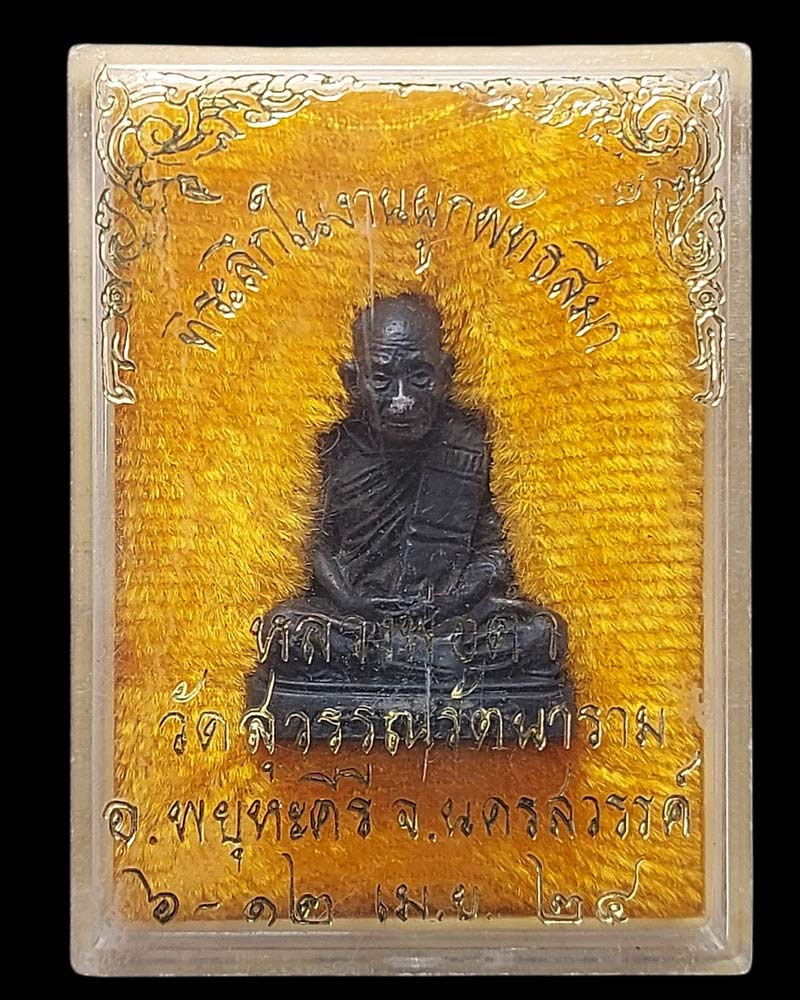 ที่ระลึกในงานผูกพัทธสีมา
หลวงพ่อดำ
วัดสุวรรณรัตนาราม
อ.พยุหะคีรี จ.นครสวรรค์
๖-๑๒ เม.ย. ๒๔